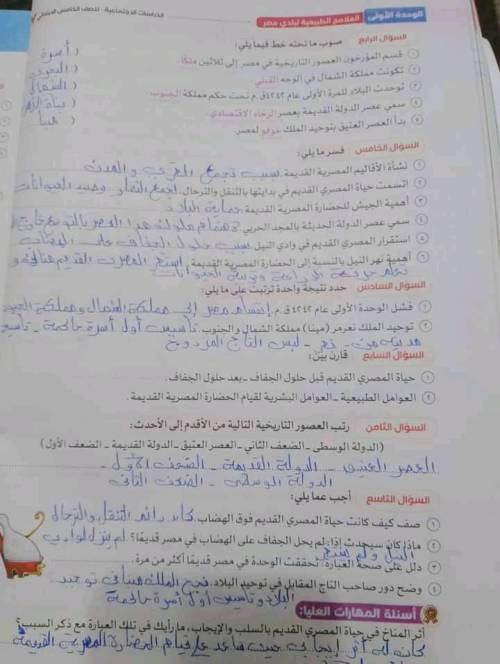 الوحدة الأولى الملامح الطبيعية لبلدي مصر
الدراسات الاجتماعية - للصف الخامس الابتدائي
السؤال الرابع صوب ما تحته خط فيما يلي:
١ قسم المؤرخون العصور التاريخية في مصر إلى ثلاثين ملكًا. ( أسرة
٢ تكونت مملكة الشمال في الوجه القبلي ( البحري
٣ توحدت البلاد للمرة الأولى عام ٤٢٤٢ق.م تحت حكم مملكة الجنوب. ( الشمال
٤ سمي عصر الدولة القديمة بعصر الرخاء الاقتصادي. ( بناة
٥ بدأ العصر العتيق بتوحيد الملك خوفو لمصر. ( مينا
السؤال الخامس فسر ما يلي:
١ نشأة الأقاليم المصرية القديمة بسبب تجمع القرى والمدن
٢ اتسمت حياة المصري القديم في بدايتها بالتنقل والترحال. لجمع الثمار وصيد الحيوانات
٣ أهمية الجيش للحضارة المصرية القديمة حماية البلاد
٤ سمي عصر الدولة الحديثة بالمجد الحربي لاهتمام ملوك هذا العصر بالتوسع خارج
٥ استقرار المصري القديم في وادي النيل بسبب حلول الجفاف على الهضاب
٦ أهمية نهر النيل بالنسبة إلى الحضارة المصرية القديمة. المصري القديم
الزراعة وتربية الحيوانات
السؤال السادس حدد نتيجة واحدة ترتبت على ما يلي:
١ فشل الوحدة الأولى عام ٤٢٤٢ ق.م. انقسام مصر إلى مملكة الشمال ومملكة الجنوب
٢ توحيد الملك نعرمر (مينا) مملكة الشمال والجنوب. تأسيس أول أسرة حاكمة -
مدينة من - لبس التاج المزدوج
السؤال السابع قارن بين:
١ حياة المصري القديم قبل حلول الجفاف - بعد حلول الجفاف.
٢ العوامل الطبيعية - العوامل البشرية لقيام الحضارة المصرية القديمة.
السؤال الثامن رتب العصور التاريخية التالية من الأقدم إلى الأحدث:
(الدولة الوسطى - الضعف الثاني - العصر العتيق - الدولة القديمة - الضعف الأول)
العصر العتيق - الدولة القديمة - الضعف الأول -
الدولة الوسطى - الضعف الثاني
السؤال التاسع أجب عما يلي:
١ صف كيف كانت حياة المصري القديم فوق الهضاب. كان دائم التنقل والترحال
٢ ماذا كان سيحدث إذا: لم يحل الجفاف على الهضاب في مصر قديمًا؟ لم ينزل لوادي
النيل ولم
٣ دلل على صحة العبارة: تحققت الوحدة في مصر قديمًا أكثر من مرة.
٤ وضح دور صاحب التاج المقابل في توحيد البلاد. نجح الملك مينا في توحيد
البلاد وتأسيس أول أسرة حاكمة
أسئلة المهارات العليا:
أثر المناخ في حياة المصري القديم بالسلب والإيجاب، ما رأيك في تلك العبارة مع ذكر السبب؟
كان له أثر إيجابي حيث ساعد على قيام الحضارة المصرية القديمة